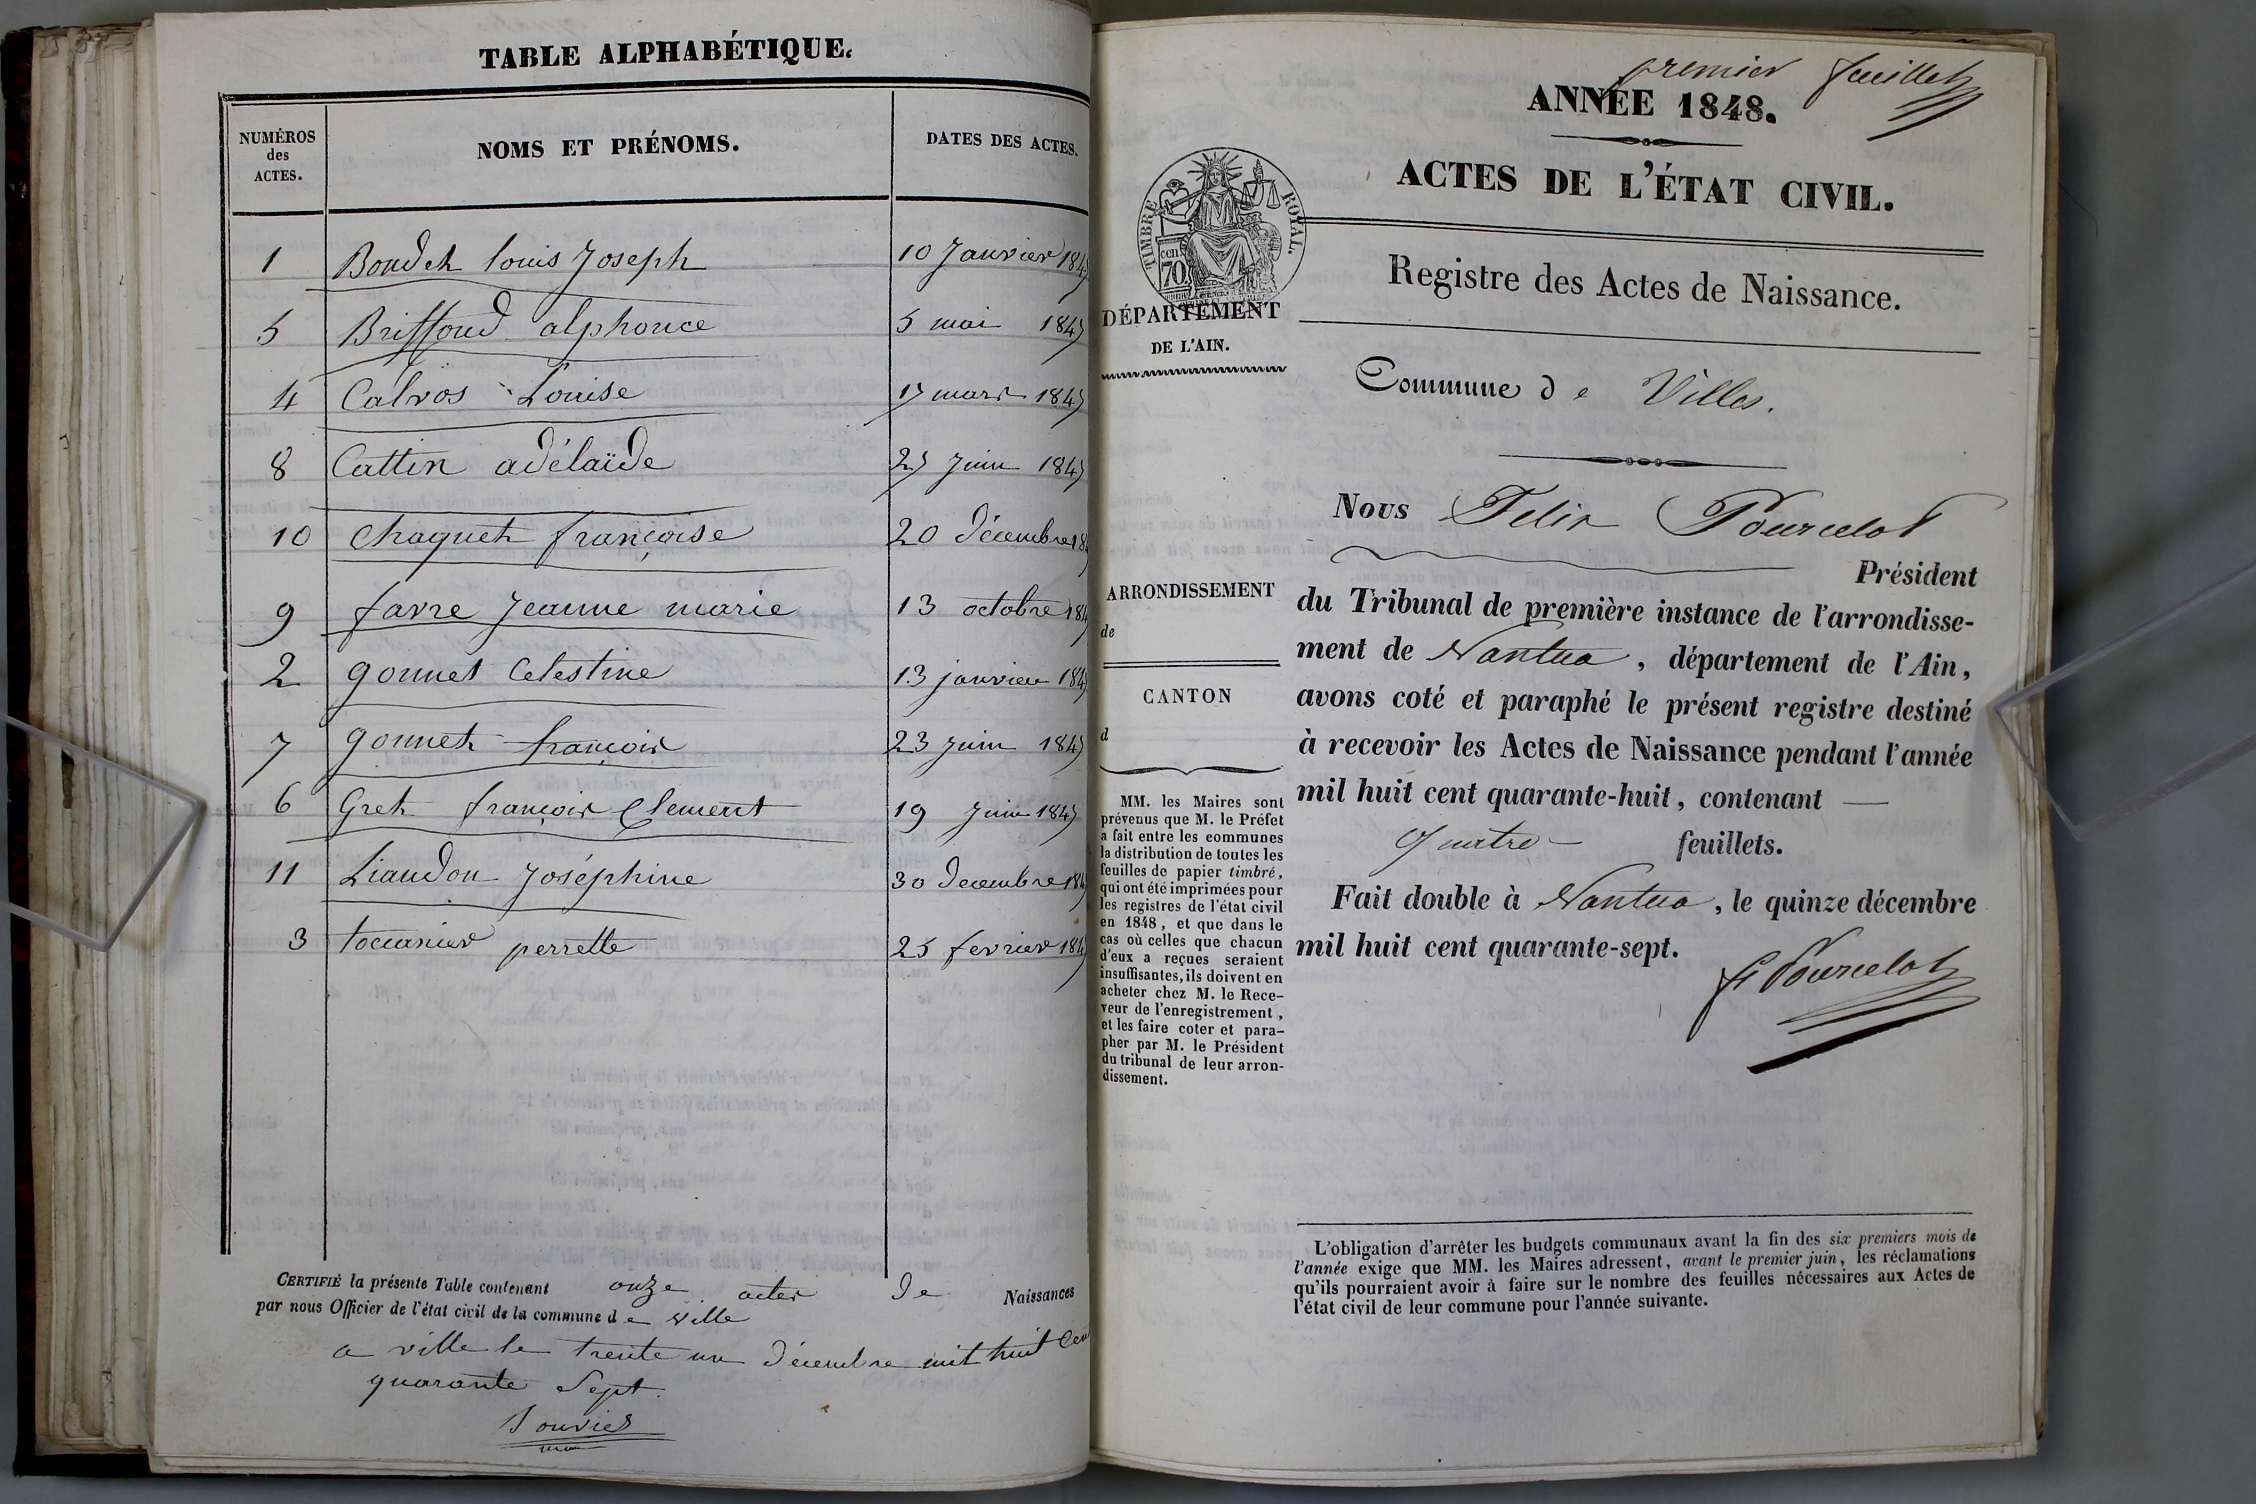 TABLE ALPHABÉTIQUE.
NUMÉROS des ACTES.
NOMS ET PRÉNOMS.
DATES DES ACTES.
1 Boudet louis Joseph 10 Janvier 1847
5 Briffoud alphonce 5 mai 1847
4 Calvos Louise 17 mars 1847
8 Cattin adélaïde 27 Juin 1847
10 Chaquet françoise 20 décembre 184
9 favre Jeanne marie 13 octobre 184
2 gonnet Celestine 13 janvier 184
7 gonnet françois 23 Juin 1847
6 Gret françois Clement 19 Juin 1847
11 Liaudon Joséphine 30 decembre 184
3 toccanier perrette 25 fevrier 184
CERTIFIÉ la présente Table contenant onze actes de Naissances
par nous Officier de l'état civil de la commune de ville
a ville le trente un décembre mil huit Cen
quarante Sept.
premier feuillet
ANNÉE 1848.
ACTES DE L'ÉTAT CIVIL.
TIMBRE ROYAL.
cen
70.
Registre des Actes de Naissance.
DÉPARTEMENT
DE L'AIN.
Commune de Villes.
Nous Felix Pourcelot
Président
du Tribunal de première instance de l'arrondisse-
ment de Nantua, département de l'Ain,
avons coté et paraphé le présent registre destiné
à recevoir les Actes de Naissance pendant l'année
mil huit cent quarante-huit, contenant —
quatre feuillets.
Fait double à Nantua, le quinze décembre
mil huit cent quarante-sept.
f Pourcelot
ARRONDISSEMENT
de
CANTON
d
MM. les Maires sont
prévenus que M. le Préfet
a fait entre les communes
la distribution de toutes les
feuilles de papier timbré,
qui ont été imprimées pour
les registres de l'état civil
en 1848, et que dans le
cas où celles que chacun
d'eux a reçues seraient
insuffisantes, ils doivent en
acheter chez M. le Rece-
veur de l'enregistrement,
et les faire coter et para-
pher par M. le Président
du tribunal de leur arron-
dissement.
L'obligation d'arrêter les budgets communaux avant la fin des six premiers mois de
l'année exige que MM. les Maires adressent, avant le premier juin, les réclamations
qu'ils pourraient avoir à faire sur le nombre des feuilles nécessaires aux Actes de
l'état civil de leur commune pour l'année suivante.